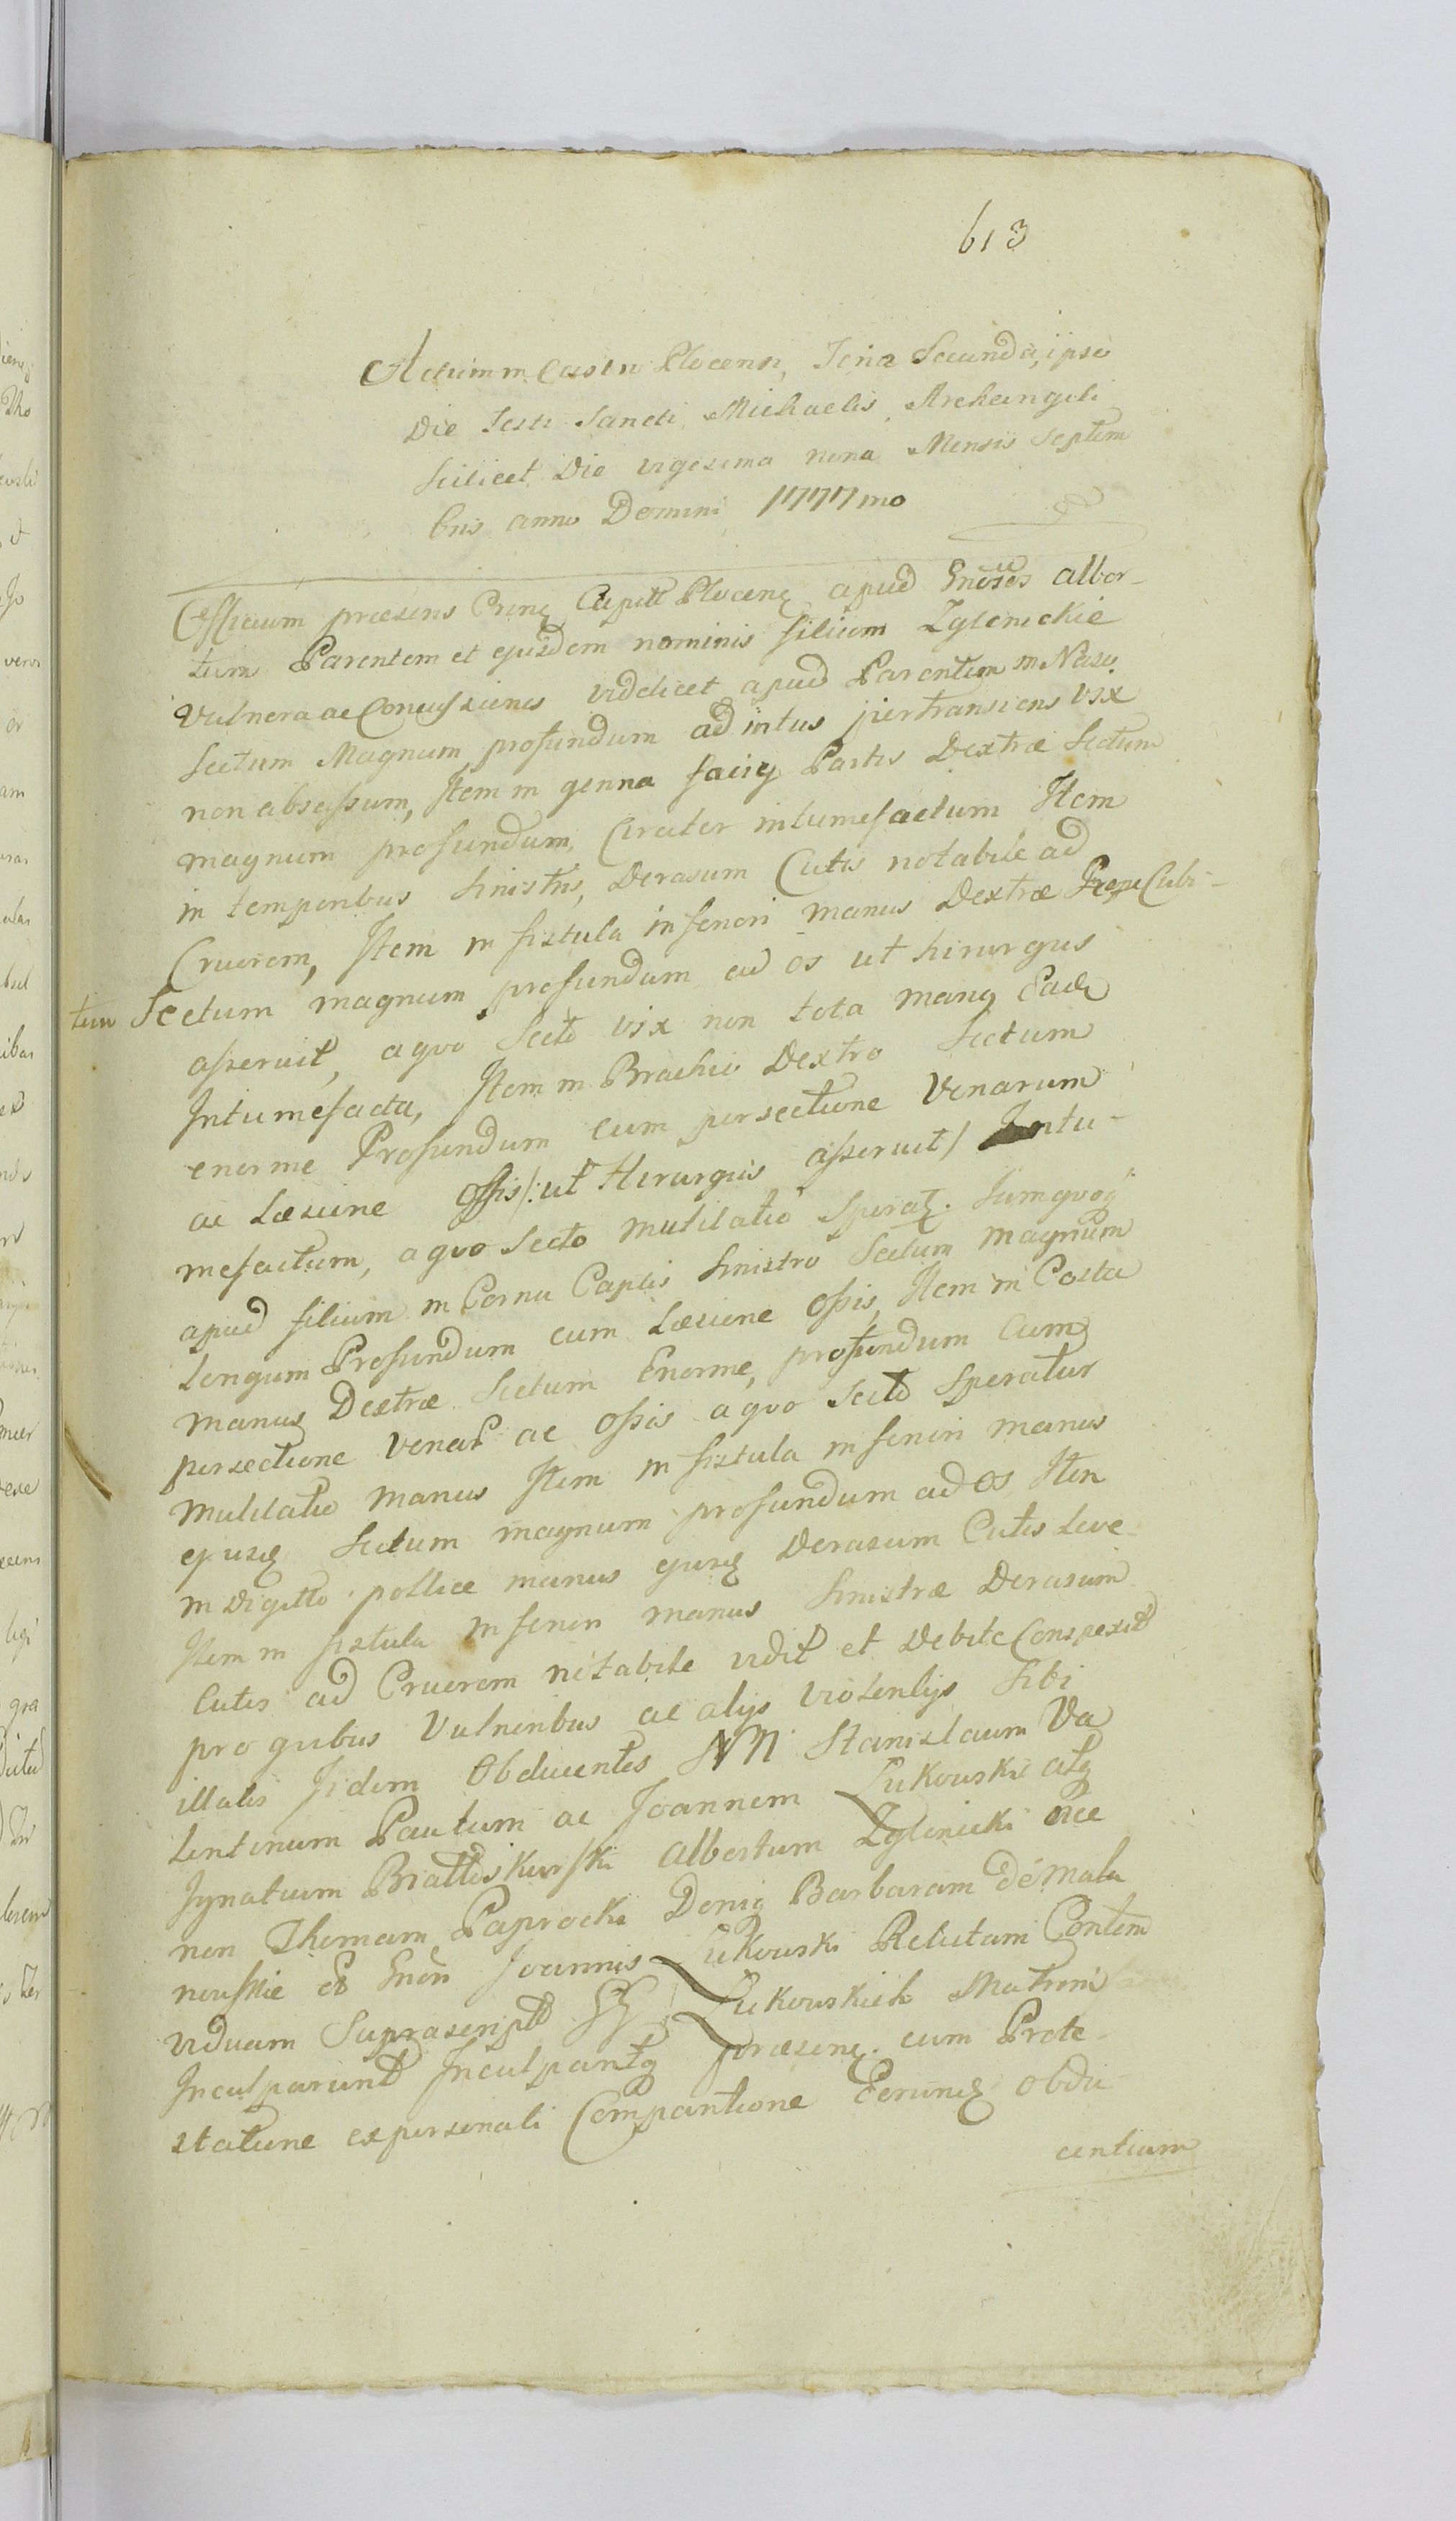 613
Actum in Castro Plocensi, Feria Secunda, ipso
Die Festi Sancti Michaelis Archangeli
scilicet Die vigesima nona Mensis Septem
bris anno Domini 1777mo
Officium præsens Capitt Plocens apud Gnosos alber-
tum Parentem et ejusdem nominis filium Zglenickie
Vulnera ac Concussiones videlicet apud Parentem in Naso
sectum Magnum profundum ad intus pertransiens vix
non abscissum, Item in genna faciej Partis Dextræ sectum
magnum profundum, Circiter intumefactum Item
in temporibus sinistris, Derasum Cutis notabile ad
Cruorem, Item in fistula inferiori manus Dextræ Prope Cubi-
tum Sectum magnum profundum ad os ut hirurgus
asseruit, a quo secto vix non tota manus Eadem
Intumefacta, Item in Brachio Dextro sectum
enorme Profundum cum persectione Venarum
ac Læsione Ossis /: ut Hirurgus asseruit / Intu-
mefactum, a quo Secto mutilatio Speratz. Tumquoq
apud filium in Cornu Captis Sinistro Sectum magnum
Longum Profundum cum Læsione Ossis, Item in Costa
manus Dextræ Sectum Enorme, profundum Cum
persectione Venar ac Ossis a quo Secto Speratur
Mutilatio manus Item in fistula inferiori manus
ejusd Sectum magnum profundum ad Os Item
in Digitto pollice manus ejusd Derasum Cutis Leve
Item in fistula inferiori manus Sinistræ Derasum
Cutis ad Cruorem notabile vidit et Debite Conspexit
pro quibus Vulneribus ac alijs violentijs Sibi
illatis Fidem Obducentes NN Stanislaum Va
lentinum Paulum ac Joannem Łukowskie atq
Ignatium Albertum Zglinicki nec
non Thomam Paprocki Deniq Barbaram de Mala
nowskie Gnosi Joannis Łukowski Relictam Contem
viduam Suprascript GG Łukowskich Matrem
Inculparunt Inculpantq præsens cum Prote-
statione ex personali Comparitione Eorund obdu
centium